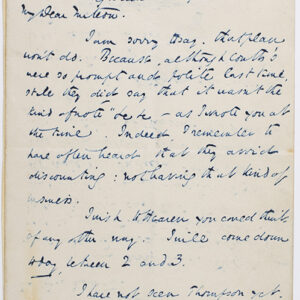 My Dear Mitton.
I am sorry to say, that place
won't do. Because, although Coutts's
were so prompt and polite last time,
still they did say that it wasn't the
kind of note &c &c, – as I wrote you at
the time. Indeed I remember to
have often heard that they avoid
discounting: not having that kind of
business.
I wish to Heaven you could think
of any other way. I will come down
today, between 2 and 3.
I have not seen Thompson yet.